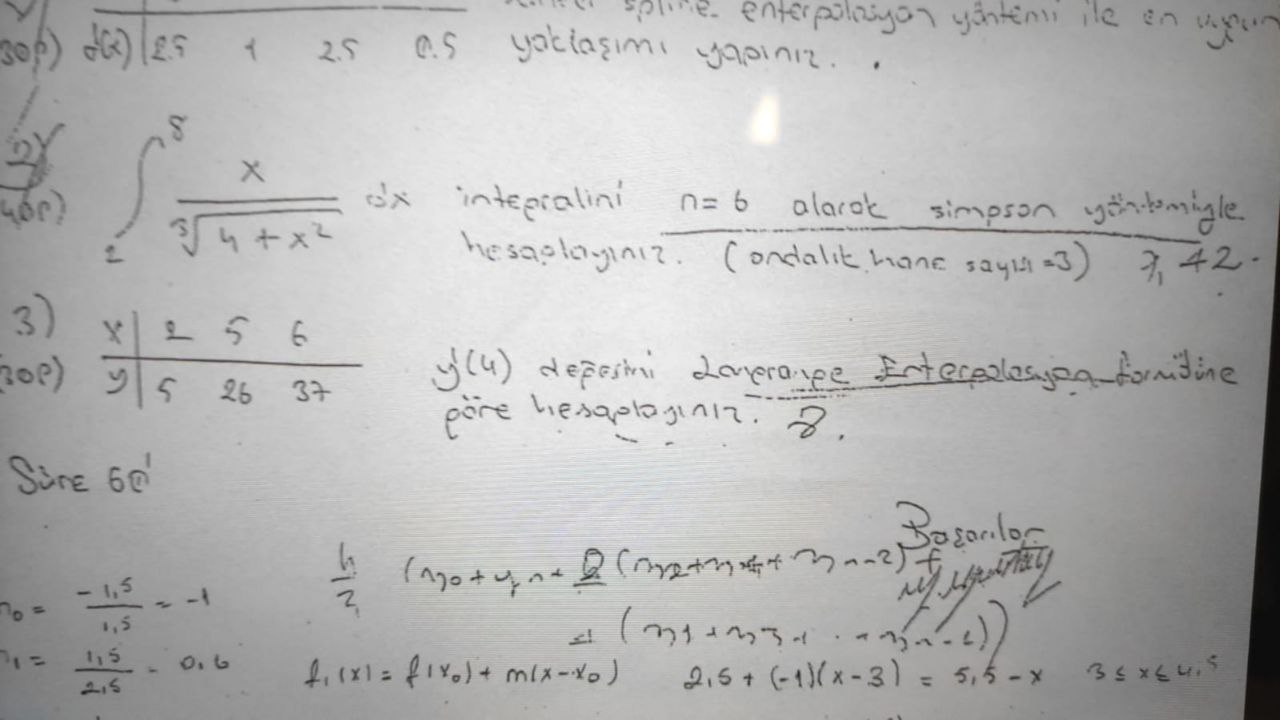 spline enterpolasyon yöntemi ile en uygun
30p) f(x) 2.5 1 2.5 0.5 yaklaşımı yapınız.
2) ∫₂⁸ x / ∛(4 + x²) dx integralini n=6 alarak simpson yöntemiyle
40p) hesaplayınız. (ondalık hane sayısı =3) 7,42
3) x 2 5 6
30p) y 5 26 37 y'(4) değerini Enterpolasyon formülüne
göre hesaplayınız. 8.
Süre 60'
Başarılar
h/3 (y0 + yn + 2 (y2+y4+ + yn-2) +
-1,5 / 1,5 = -1
4 (y1 + y3 + . + yn-1))
1,5 / 2,5 = 0.6 f1(x) = f(x0) + m(x-x0) 2,5 + (-1)(x-3) = 5,5 - x 3 ≤ x ≤ 4,5